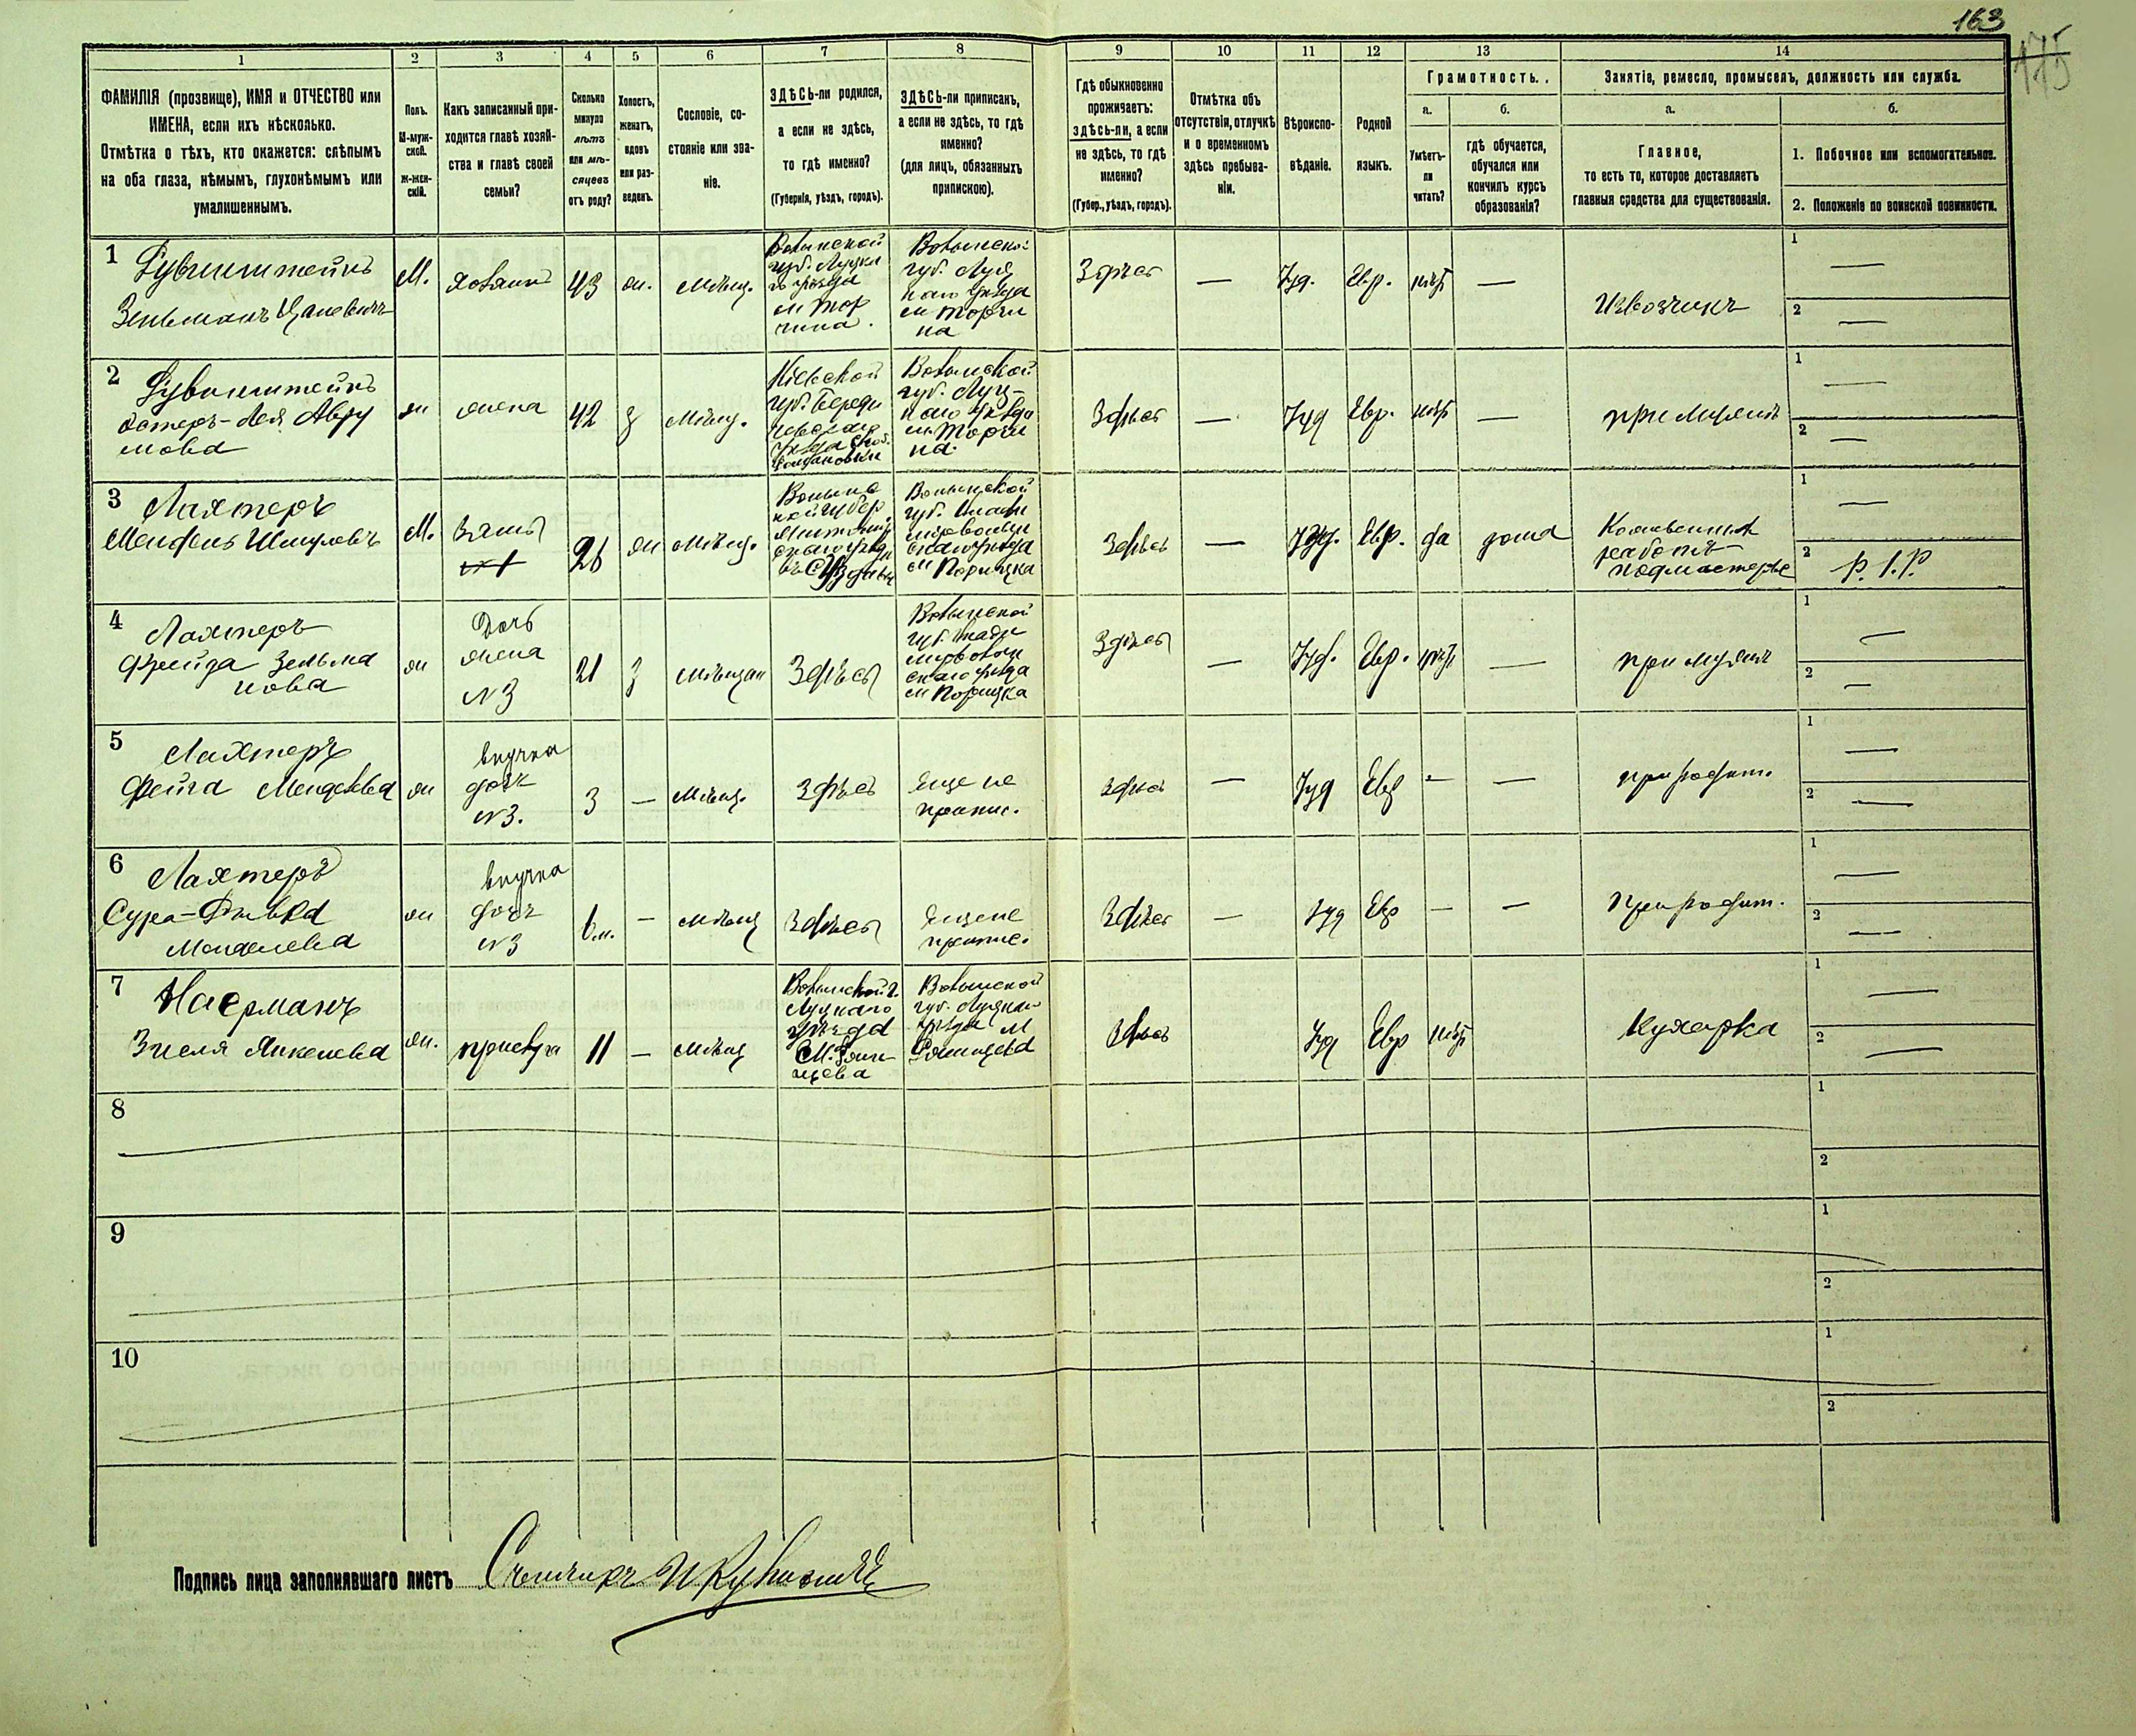 163
175
1 2 3 4 5 6 7 8 9 10 11 12 13 14
ФАМИЛІЯ (прозвище), ИМЯ и ОТЧЕСТВО или
ИМЕНА, если ихъ нѣсколько.
Отмѣтка о тѣхъ, кто окажется: слѣпымъ
на оба глаза, нѣмымъ, глухонѣмымъ или
умалишеннымъ.
Полъ.
М-муж-
ской.
Ж-жен-
скій.
Какъ записанный при-
ходится главѣ хозяй-
ства и главѣ своей
семьи?
Сколько
минуло
лѣтъ
или мѣ-
сяцевъ
отъ роду?
Холостъ,
женатъ,
вдовъ
или раз-
веденъ.
Сословіе, со-
стояніе или зва-
ніе.
ЗДѢСЬ-ли родился,
а если не здѣсь,
то гдѣ именно?
(Губернія, уѣздъ, городъ).
ЗДѢСЬ-ли приписанъ,
а если не здѣсь, то гдѣ
именно?
(для лицъ, обязанныхъ
припискою).
Гдѣ обыкновенно
проживаетъ:
здѣсь-ли, а если
не здѣсь, то гдѣ
именно?
(Губер., уѣздъ, городъ).
Отмѣтка объ
отсутствіи, отлучкѣ
и о временномъ
здѣсь пребыва-
ніи.
Вѣроиспо-
вѣданіе.
Родной
языкъ.
Грамотность.
а.
Умѣетъ-
ли
читать?
б.
гдѣ обучается,
обучался или
кончилъ курсъ
образованія?
Занятіе, ремесло, промыселъ, должность или служба.
а.
Главное,
то есть то, которое доставляетъ
главныя средства для существованія.
б.
1. Побочное или вспомогательное.
2. Положеніе по воинской повинности.
1
Зельманъ
М.
хозяинъ
43
ж.
мѣщ.
Волынской
губ. Луцка
го уѣзда
м Тор
чина.
Волынской
губ. Луц
каго уѣзда
м Торчи
на
Здѣсь
—
Іуд.
Евр.
нѣт
—
Извозчикъ
1 —
2 —
2
Эстеръ-Лея Авру
мова
ж
жена
42
з
Мѣщ.
Кіевской
губ.
Волынской
губ. Луц-
каго уѣзда
м. Торчи
на.
Здѣсь
—
Іуд
Евр.
нѣт
—
при мужѣ
1 —
2 —
3 Лахтеръ
Мендель Шмулевъ
М.
Зять
26
ж
мѣщ.
Волынс
кой губер.
Житомир
скаго уѣзда
Волынской
губ. Влади
мірволын
скаго уѣзда
м Порицка
Здѣсь
—
Іуд.
Евр.
да
дома
работъ
подмастерье
1 —
2 Р. I. Р.
4 Лахтеръ
Фрейда Зельма
нова
ж
Дочь
жена
№3
21
з
мѣщан
Здѣсь
Волынской
губ. Влади
мірволын
скаго уѣзда
м Порицка
Здѣсь
—
Іуд.
Евр.
нѣт
—
при мужѣ
1 —
2 —
5 Лахтеръ
Фейга Менделева
ж
внучка
доч
№3.
3
—
Мѣщ.
Здѣсь
Еще не
припис.
здѣсь
—
Іуд
Евр
—
—
при родит.
1 —
2 —
6 Лахтеръ
Сура-Ривка
Менделева
ж
внучка
доч
№3
6 м.
—
мѣщ
Здѣсь
Еще не
припис.
Здѣсь
—
Іуд
Евр
—
—
При родит.
1 —
2 —
7
Янкелева
ж.
прислуга
11
—
мѣщ
Волынской г.
Луцкаго
уѣзда
М. Рожи-
щева
Волынской
губ. Луцкаго
уѣзда м
Рожищева
Здѣсь
Іуд
Евр
нѣт
Кухарка
1 —
2 —
8
1
2
9
1
2
10
1
2
Подпись лица заполнявшаго листъ Счетчикъ